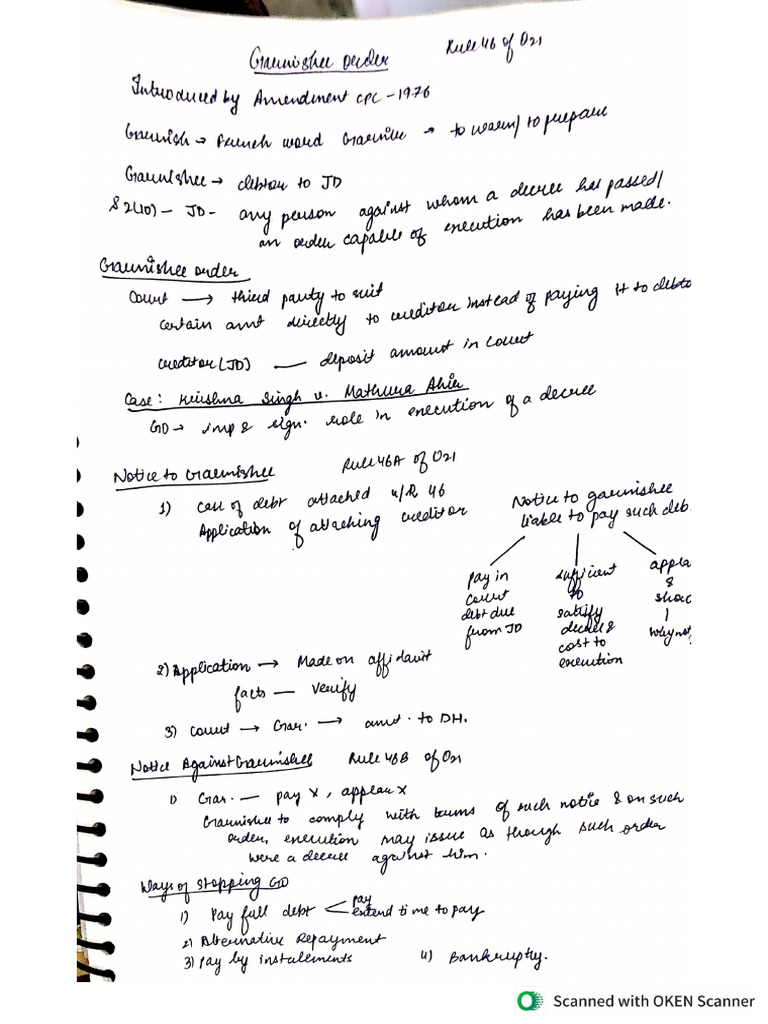 Garnishee order Rule 46 of O21
Introduced by Amendment CPC - 1976
Garnish → French word Garnire → to warn/to prepare
Garnishee → debtor to JD
S 2(10) - JD - any person against whom a decree has passed/
an order capable of execution has been made.
Garnishee order
Court → third party to suit
certain amt directly to creditor instead of paying it to debto
creditor (JD) — deposit amount in court
Case: Krishna Singh v. Mathura Ahir
GO → imp & sign. role in execution of a decree
Notice to Garnishee Rule 46A of O21
1) Case of debt attached u/R 46
Application of attaching creditor
Notice to garnishee
liable to pay such deb
pay in
court
debt due
from JD
sufficient
to
satisfy
decree &
cost to
execution
appea
&
show
why not
2) Application → Made on affidavit
facts — verify
3) Court → Gar. → amt. to DH.
Notice Against Garnishee Rule 46B of O21
1) Gar. — pay x, appear x
Garnishee to comply with terms of such notice & on such
order, execution may issue as through such order
were a decree against him.
Ways of stopping GO
1) Pay full debt < pay
extend time to pay
2) Alternative Repayment
3) Pay by instalements 4) Bankrupty.
Scanned with OKEN Scanner